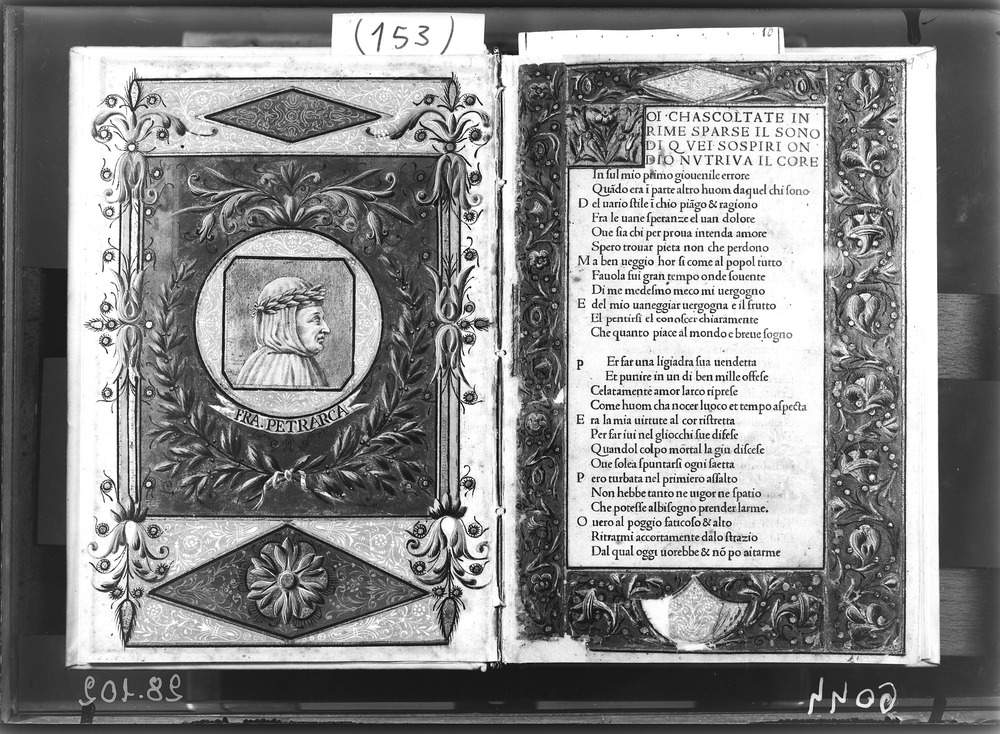 (153)
10
FRA. PETRARCA
VOI·CHASCOLTATE IN
RIME SPARSE IL SONO
DI Q VEI SOSPIRI ON
DIO NVTRIVA IL CORE
In ſul mio primo giouenile errore
Quādo era ī parte altro huom da quel chi ſono
D el uario ſtile ī chio piāgo & ragiono
Fra le uane ſperanze el uan dolore
Oue ſia chi per proua intenda amore
Spero trouar pieta non che perdono
M a ben ueggio hor ſi come al popol tutto
Fauola fui gran tempo onde ſouente
Di me medeſmo meco mi uergogno
E del mio uaneggiar uergogna e il frutto
El pentirſi el conoſcer chiaramente
Che quanto piace al mondo e breue ſogno
P Er far una ligiadra ſua uendetta
Et punire in un di ben mille offeſe
Celatamente amor larco ripreſe
Come huom cha nocer luoco et tempo aſpecta
E ra la mia uirtute al cor riſtretta
Per far iui nel gliocchi ſue difeſe
Quandol colpo mortal la giu diſceſe
Oue ſolea ſpuntarſi ogni ſaetta
P ero turbata nel primiero aſſalto
Non hebbe tanto ne uigor ne ſpatio
Che poteſſe albiſogno prender larme.
O uero al poggio faticoſo & alto
Ritrarmi accortamente dalo ſtrazio
Dal qual oggi uorebbe & nō po aitarme
28.102
6044